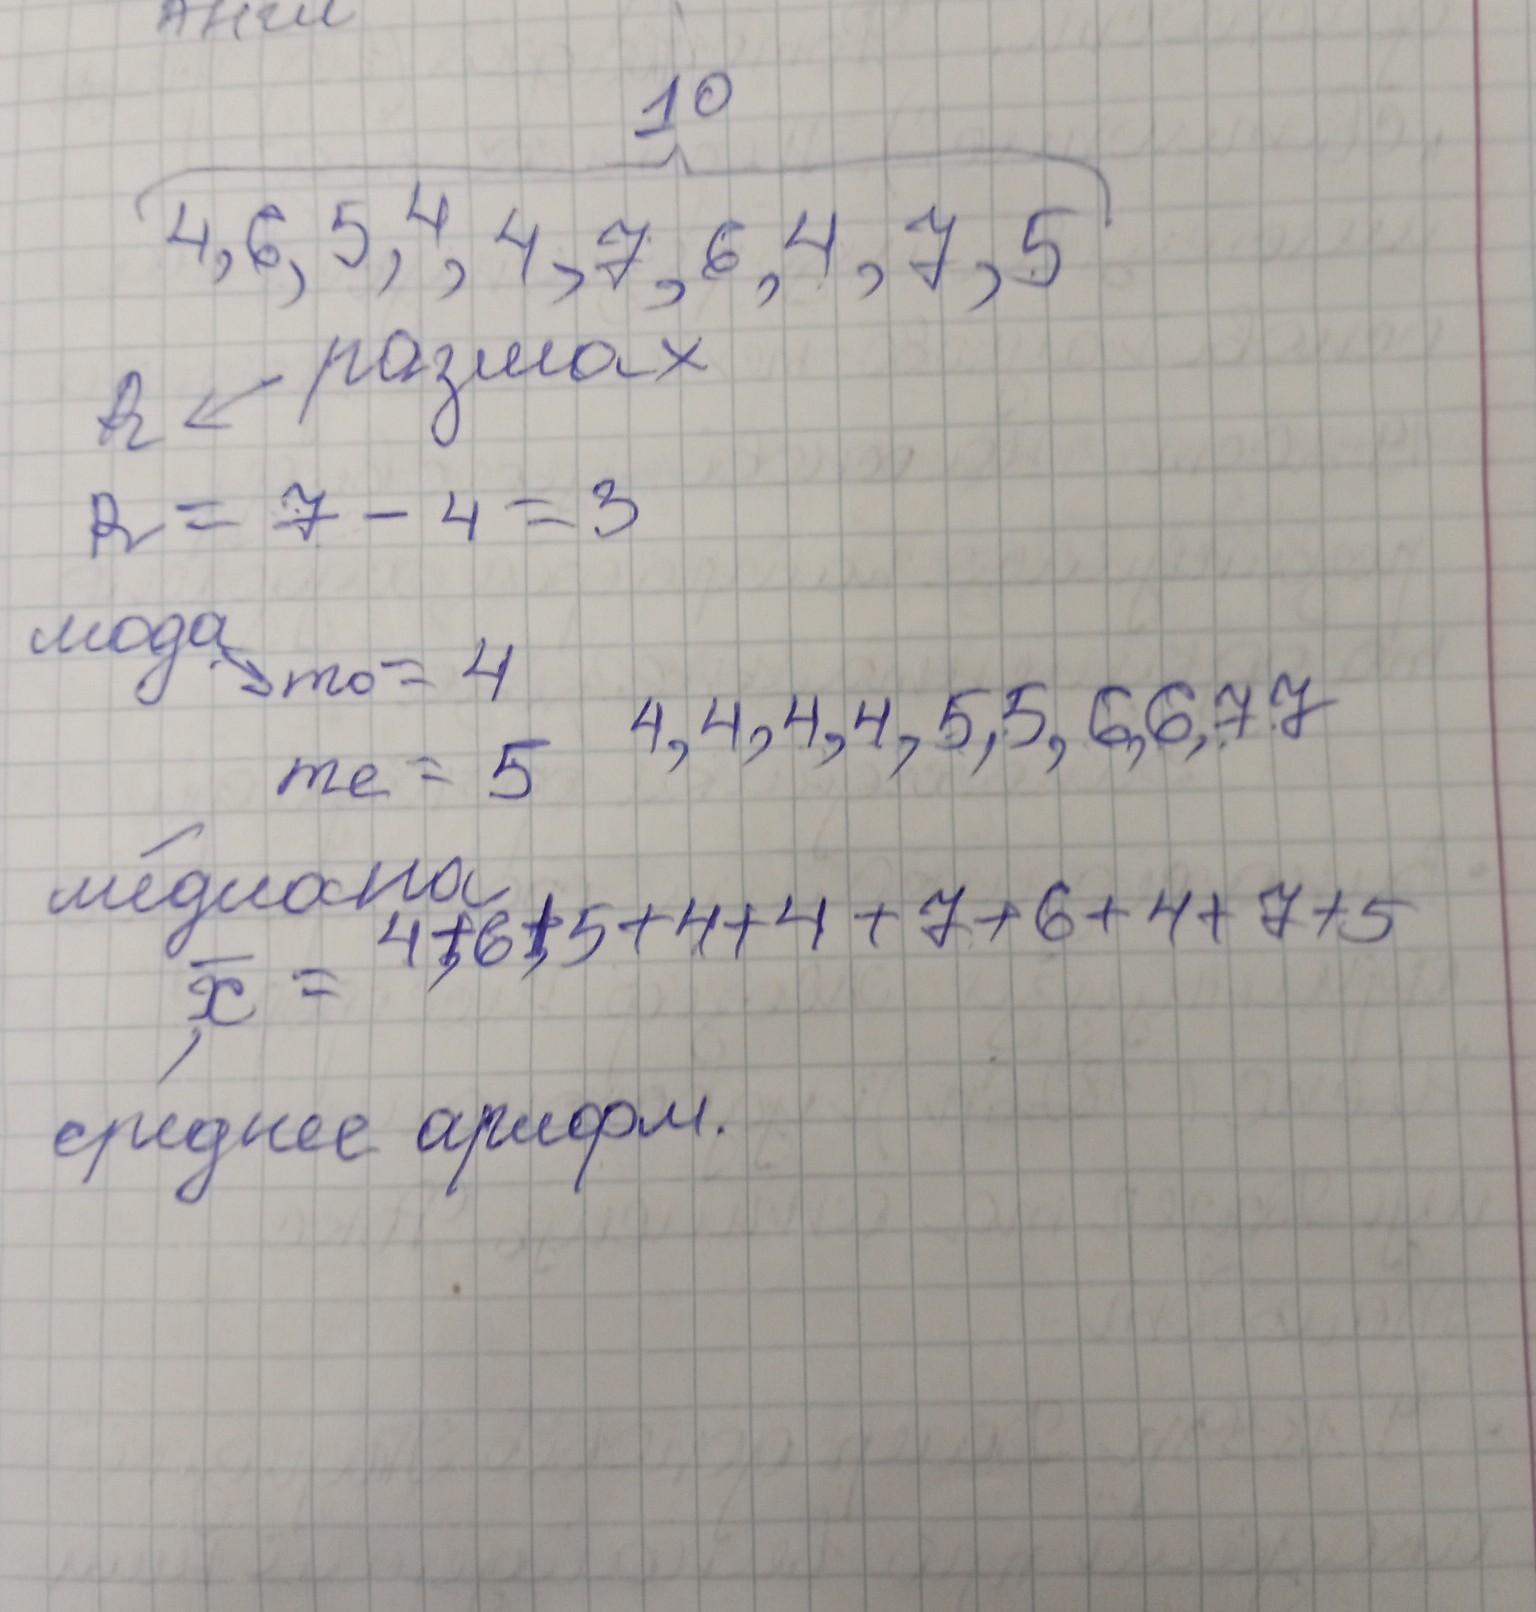 Англ
10
4, 6, 5, 4, 4, 7, 6, 4, 7, 5
R ← размах
R = 7 - 4 = 3
мода
mo = 4
4, 4, 4, 4, 5, 5, 6, 6, 7 7
me = 5
медиана
x̄ = 4+6+5+4+4+7+6+4+7+5
среднее арифм.